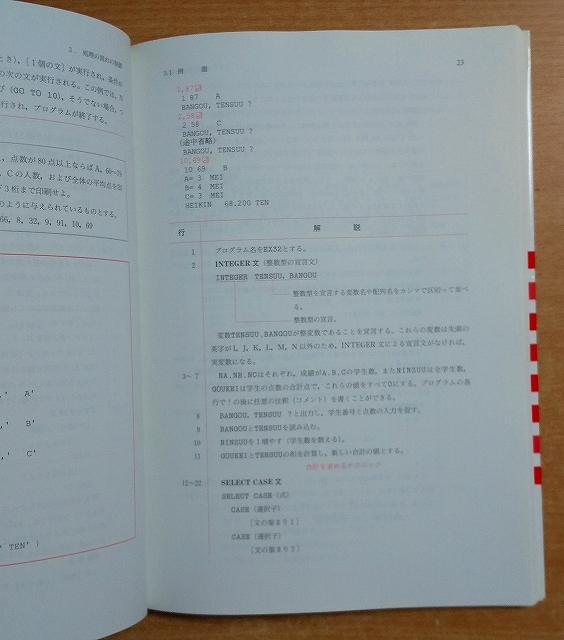 3. 処理の流れの制御
とき), [1個の文] が実行され, 条件が
の次の文が実行される。この例では, 万
び (GO TO 10), そうでない場合, つ
行され, プログラムが終了する。
, 点数が80点以上ならばA, 60~79
, Cの人数, および全体の平均点を出
下3桁まで印刷せよ。
のように与えられているものとする。
66, 8, 32, 9, 91, 10, 69
,' A'
,' B'
,' C'
' TEN' )
3.1 例 題
23
1,87
1 87 A
BANGOU, TENSUU ?
2,58
2 58 C
BANGOU, TENSUU ?
(途中省略)
BANGOU, TENSUU ?
10,69
10 69 B
A= 3 MEI
B= 4 MEI
C= 3 MEI
HEIKIN 68.200 TEN
行 解 説
1 プログラム名をEX32とする。
2 INTEGER 文 (整数型の宣言文)
INTEGER TENSUU, BANGOU
整数型を宣言する変数名や配列名をカンマで区切って並べ
る。
整数型の宣言。
変数TENSUU, BANGOUが整変数であることを宣言する。これらの変数は先頭の
英字が I, J, K, L, M, N 以外のため, INTEGER 文による宣言文がなければ,
実変数になる。
3~7 NA, NB, NCはそれぞれ, 成績がA, B, Cの学生数, またNINZUUは全学生数,
GOUKEIは学生の点数の合計点で, これらの値をすべて0にする。プログラムの各
行で ! の後に任意の注釈 (コメント) を書くことができる。
8 BANGOU, TENSUU ? と出力し, 学生番号と点数の入力を促す。
9 BANGOUとTENSUUを読み込む。
10 NINZUUを1増やす (学生数を数える)。
11 GOUKEIとTENSUUの和を計算し, 新しい合計の値とする。
合計を求めるテクニック
12~22 SELECT CASE 文
SELECT CASE (式)
CASE (選択子)
[文の集まり1]
CASE (選択子)
[文の集まり2]